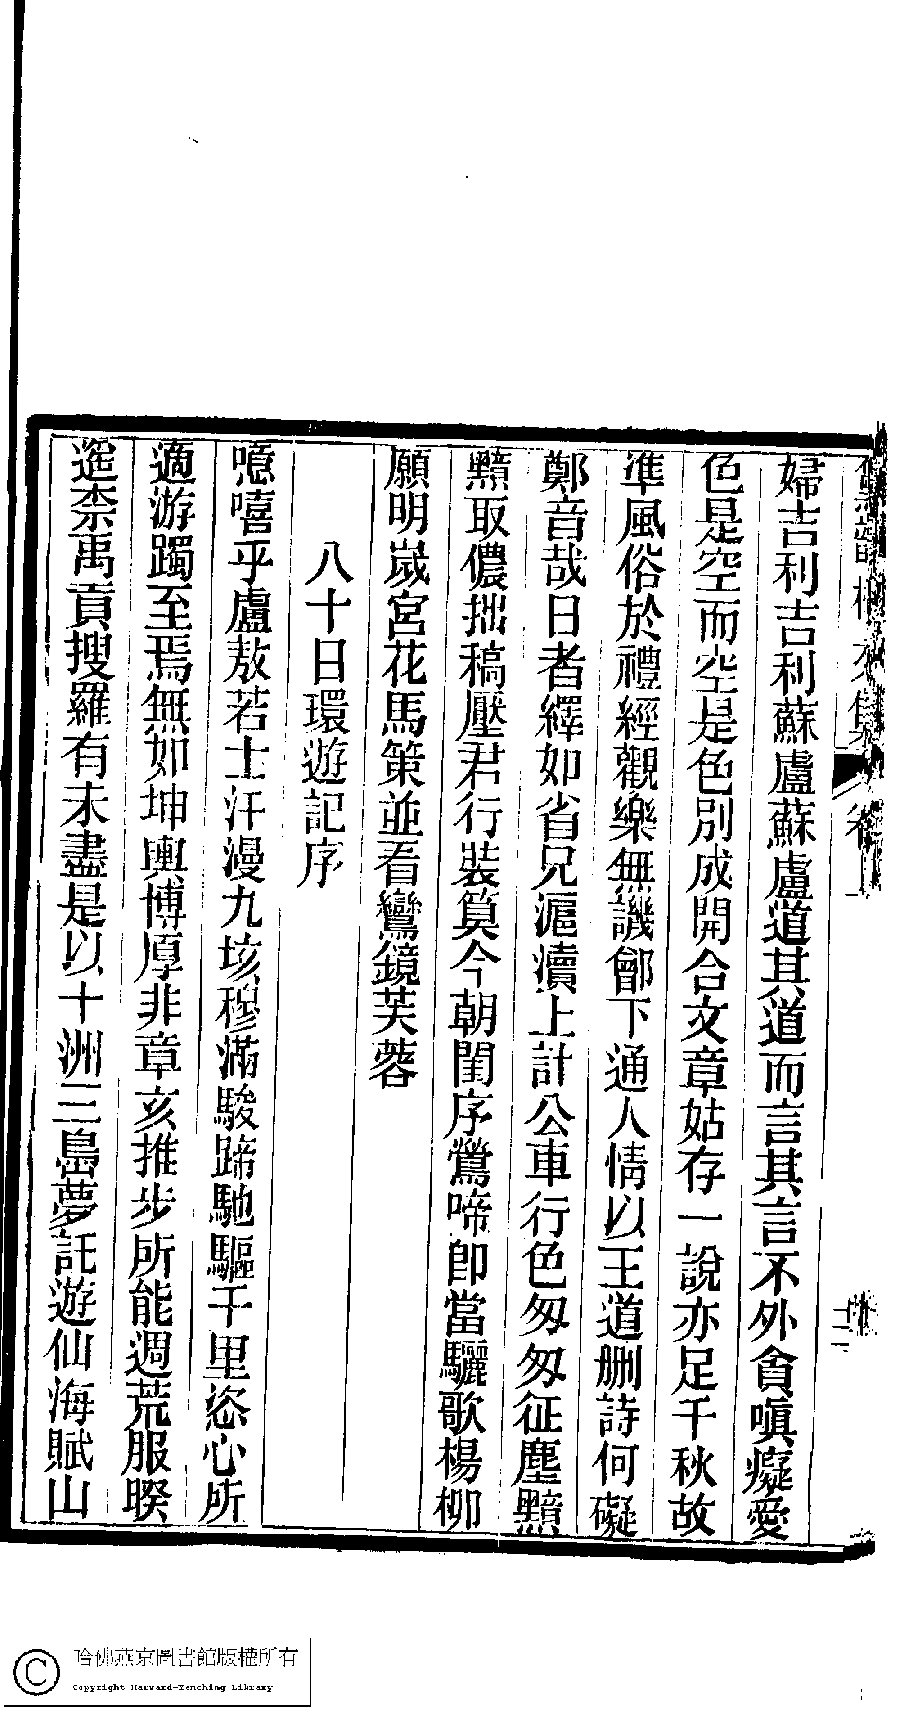 婦吉利吉利蘇盧蘇盧道其道而言其言不外貪嗔癡愛
色是空而空是色別成開合文章姑存一說亦足千秋故
準風俗於禮經觀樂無譏鄶下通人情以王道刪詩何礙
鄭音哉日者繹如省兄滬瀆上計公車行色匆匆征塵黯
黯取儂拙稿壓君行裝算今朝閨序鶯啼卽當驪歌楊柳
願明歲宮花馬策並看鸞鏡芙蓉
八十日環遊記序
噫嘻乎盧敖若士汗漫九垓穆滿駿蹄馳驅千里恣心所
適游躅至焉無如坤輿博厚非章亥推步所能週荒服暌
遙柰禹貢搜羅有未盡是以十洲三島夢託遊仙海賦山
集 卷一
十二
哈佛燕京圖書館版權所有
Copyright Harvard-Yenching Library